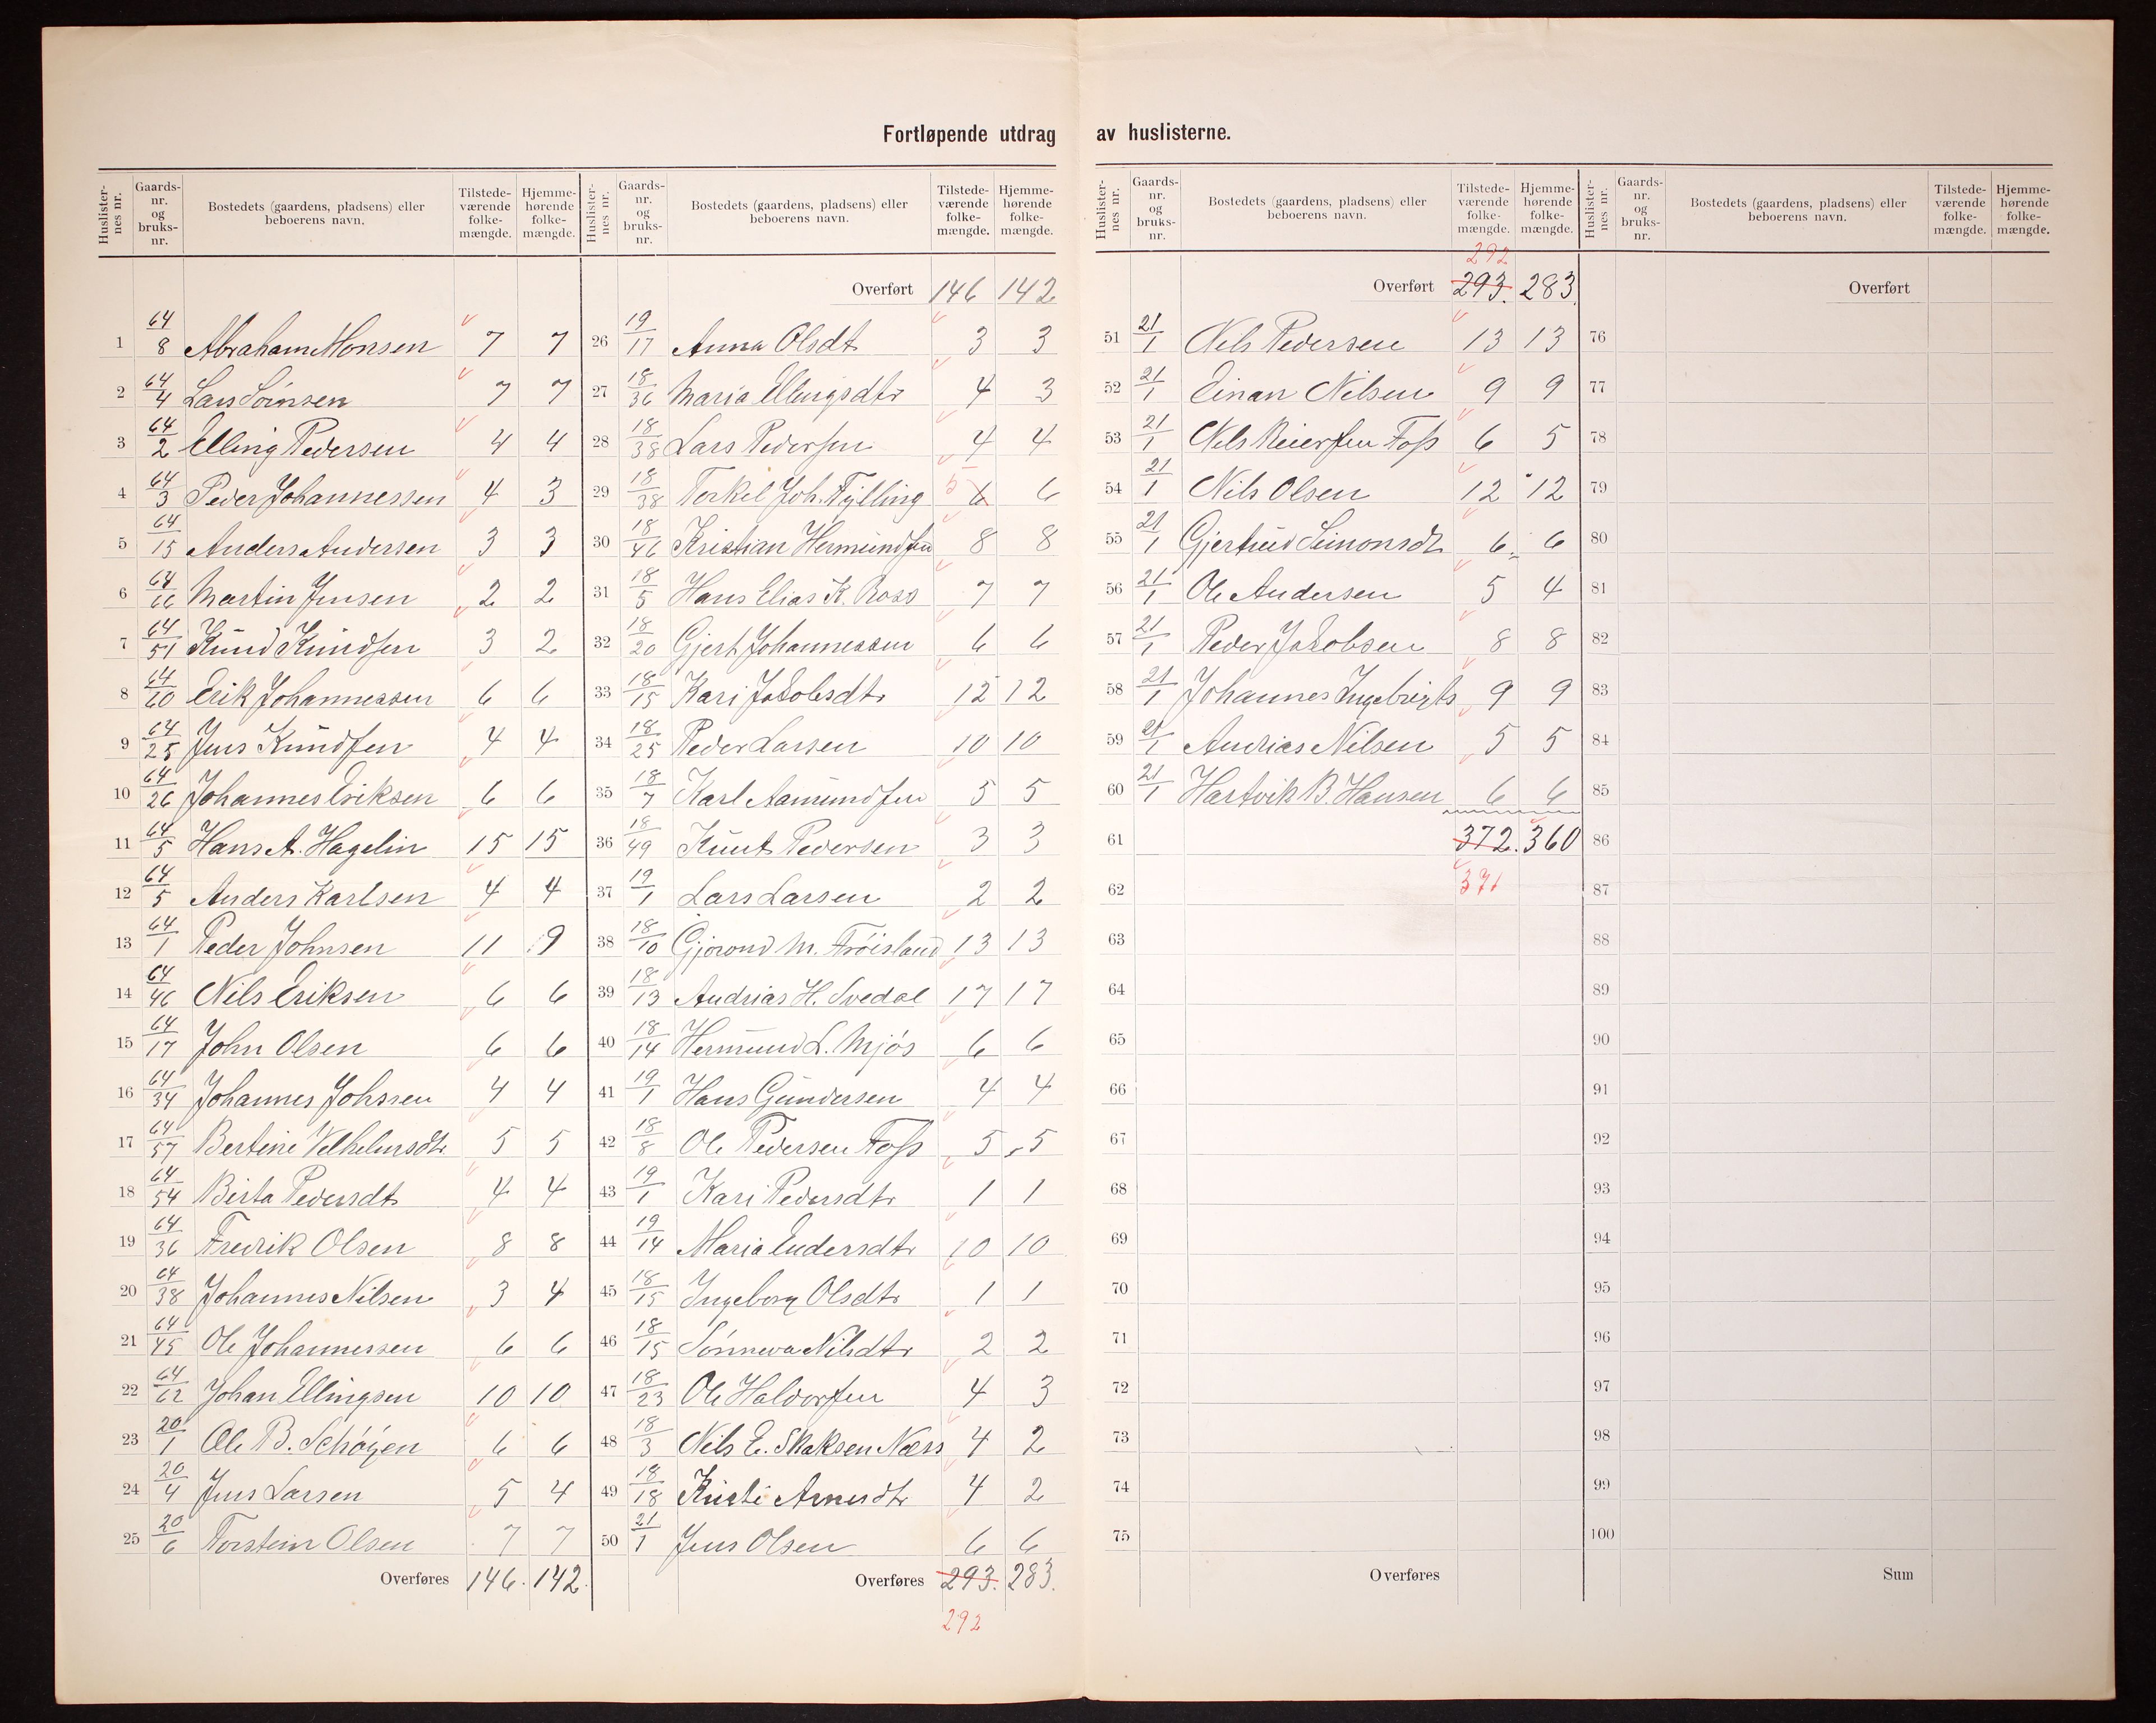 Fortløpende utdrag av huslisterne.
Huslister-nes nr. Gaards-nr. og bruks-nr. Bostedets (gaardens, pladsens) eller beboerens navn. Tilstede-værende folke-mængde. Hjemme-hørende folke-mængde.
1 64/8 Abraham Monsen 7 7
2 64/4 Lars Sørnsen 7 7
3 64/2 Elling Pedersen 4 4
4 64/3 Peder Johannessen 4 3
5 64/15 Anders Andersen 3 3
6 64/66 Martin Jensen 2 2
7 64/51 Knud Knudsen 3 2
8 64/60 Erik Johannessen 6 6
9 64/25 Jens Knudsen 4 4
10 64/26 Johannes Eriksen 6 6
11 64/5 Hans A. Hagelin 15 15
12 64/5 Anders Karlsen 4 4
13 64/1 Peder Johnsen 11 9
14 64/46 Nils Eriksen 6 6
15 64/17 John Olsen 6 6
16 64/34 Johannes Johssen 4 4
17 64/57 Bertine Velhelmsdtr. 5 5
18 64/54 Berta Pedersdt 4 4
19 64/36 Fredrik Olsen 8 8
20 64/38 Johannes Nilsen 3 4
21 64/45 Ole Johannessen 6 6
22 64/62 Johan Ellingsen 10 10
23 20/1 Ole B. Schøyen 6 6
24 20/4 Jens Larsen 5 4
25 20/6 Torstein Olsen 7 7
Overføres 146. 142.
Huslister-nes nr. Gaards-nr. og bruks-nr. Bostedets (gaardens, pladsens) eller beboerens navn. Tilstede-værende folke-mængde. Hjemme-hørende folke-mængde.
Overført 146 142
26 19/17 Anna Olsdt 3 3
27 18/36 Maria Ellingsdtr 4 3
28 18/38 Lars Pedersen 4 4
29 18/38 Terkel Joh. Fylling 5 6 6
30 18/46 Kristian Hermundsen 8 8
31 18/5 Hans Elias K. Ross 7 7
32 18/20 Gjert Johannessen 6 6
33 18/15 Kari Jakobsdtr 12 12
34 18/25 Peder Larsen 10 10
35 18/7 Karl Aamundsen 5 5
36 18/49 Knut Pedersen 3 3
37 19/1 Lars Larsen 2 2
38 18/10 Gjorond M. Frøisland 13 13
39 18/13 Andrias H. Svedal 17 17
40 18/14 Hermund L. Mjøs 6 6
41 19/1 Hans Gundersen 4 4
42 18/8 Ole Pedersen Foss 5 5
43 19/1 Kari Pedersdtr 1 1
44 19/14 Maria Endersdtr 10 10
45 18/15 Ingeborg Olsdtr 1 1
46 18/15 Sønneva Nilsdtr 2 2
47 18/23 Ole Haldorsen 4 3
48 18/3 Nils E. Skaksen Næss 4 2
49 18/18 Kristi Arnesdtr 4 2
50 21/1 Jens Olsen 6 6
Overføres 293. 283.
292
Huslister-nes nr. Gaards-nr. og bruks-nr. Bostedets (gaardens, pladsens) eller beboerens navn. Tilstede-værende folke-mængde. Hjemme-hørende folke-mængde.
292
Overført 293. 283
51 21/1 Nils Pedersen 13 13
52 21/1 Einan Nilsen 9 9
53 21/1 Nils Reiersen Foss 6 5
54 21/1 Nils Olsen 12 12
55 21/1 Gjertrud Simonsdt 6 6
56 21/1 Ole Andersen 5 4
57 21/1 Peder Jakobsen 8 8
58 21/1 Johannes Ingebrigts 9 9
59 21/1 Andrias Nilsen 5 5
60 21/1 Hartvik B. Hansen 6 6
61 372. 360
62 371
63
64
65
66
67
68
69
70
71
72
73
74
75
Overføres
Huslister-nes nr. Gaards-nr. og bruks-nr. Bostedets (gaardens, pladsens) eller beboerens navn. Tilstede-værende folke-mængde. Hjemme-hørende folke-mængde.
Overført
76
77
78
79
80
81
82
83
84
85
86
87
88
89
90
91
92
93
94
95
96
97
98
99
100
Sum